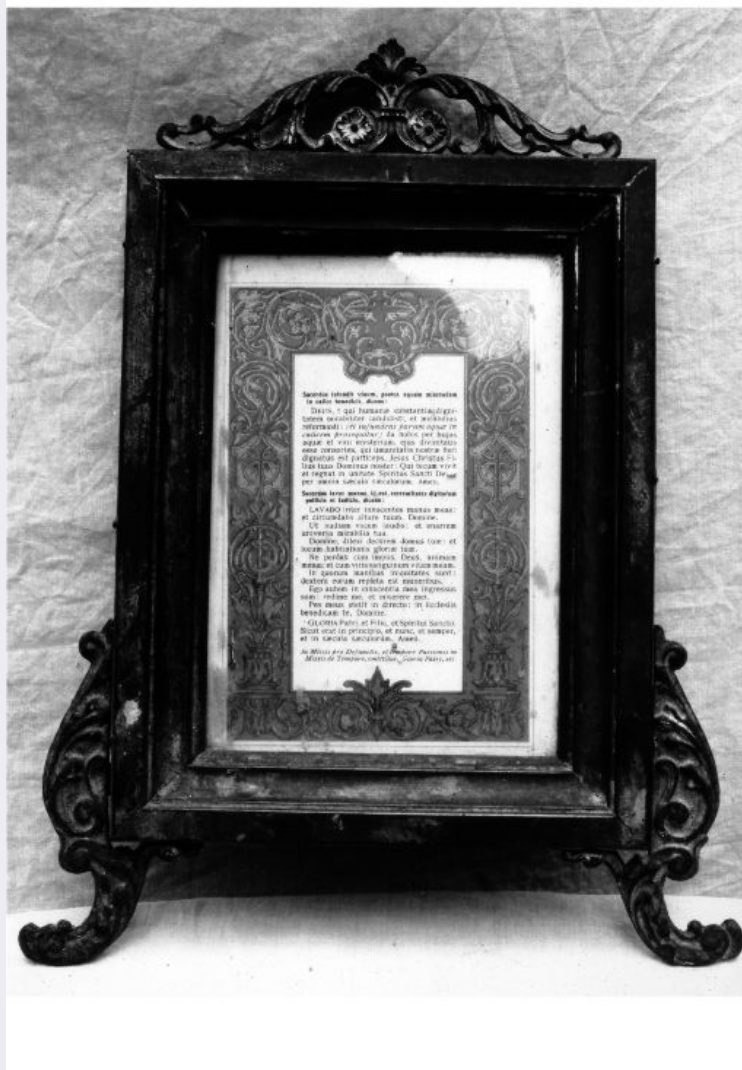 Sacerdos infundit vinum, postea aquam miscendam
in calice benedicit, dicens:
DEUS, † qui humanæ substantiæ digni-
tatem mirabiliter condidisti, et mirabilius
reformasti: (hic infundens parum aquæ in
calicem prosequitur:) da nobis per hujus
aquæ et vini mysterium, ejus divinitatis
esse consortes, qui humanitatis nostræ fieri
dignatus est particeps, Jesus Christus Fi-
lius tuus Dominus noster: Qui tecum vivit
et regnat in unitate Spiritus Sancti De
per omnia sæcula sæculorum. Amen.
Sacerdos lavat manus, id est, extremitates digitorum
pollicis et indicis, dicens:
LAVABO inter innocentes manus meas:
et circumdabo altare tuum, Domine.
Ut audiam vocem laudis: et enarrem
universa mirabilia tua.
Domine, dilexi decorem domus tuæ: et
locum habitationis gloriæ tuæ.
Ne perdas cum impiis, Deus, animam
meam: et cum viris sanguinum vitam meam.
In quorum manibus iniquitates sunt:
dextera eorum repleta est muneribus.
Ego autem in innocentia mea ingressus
sum: redime me, et miserere mei.
Pes meus stetit in directo: in Ecclesiis
benedicam te, Domine.
GLORIA Patri, et Filio, et Spiritui Sancto.
Sicut erat in principio, et nunc, et semper,
et in sæcula sæculorum. Amen.
In Missis pro Defunctis, et tempore Passionis in
Missis de Tempore, omittitur Gloria Patri, etc